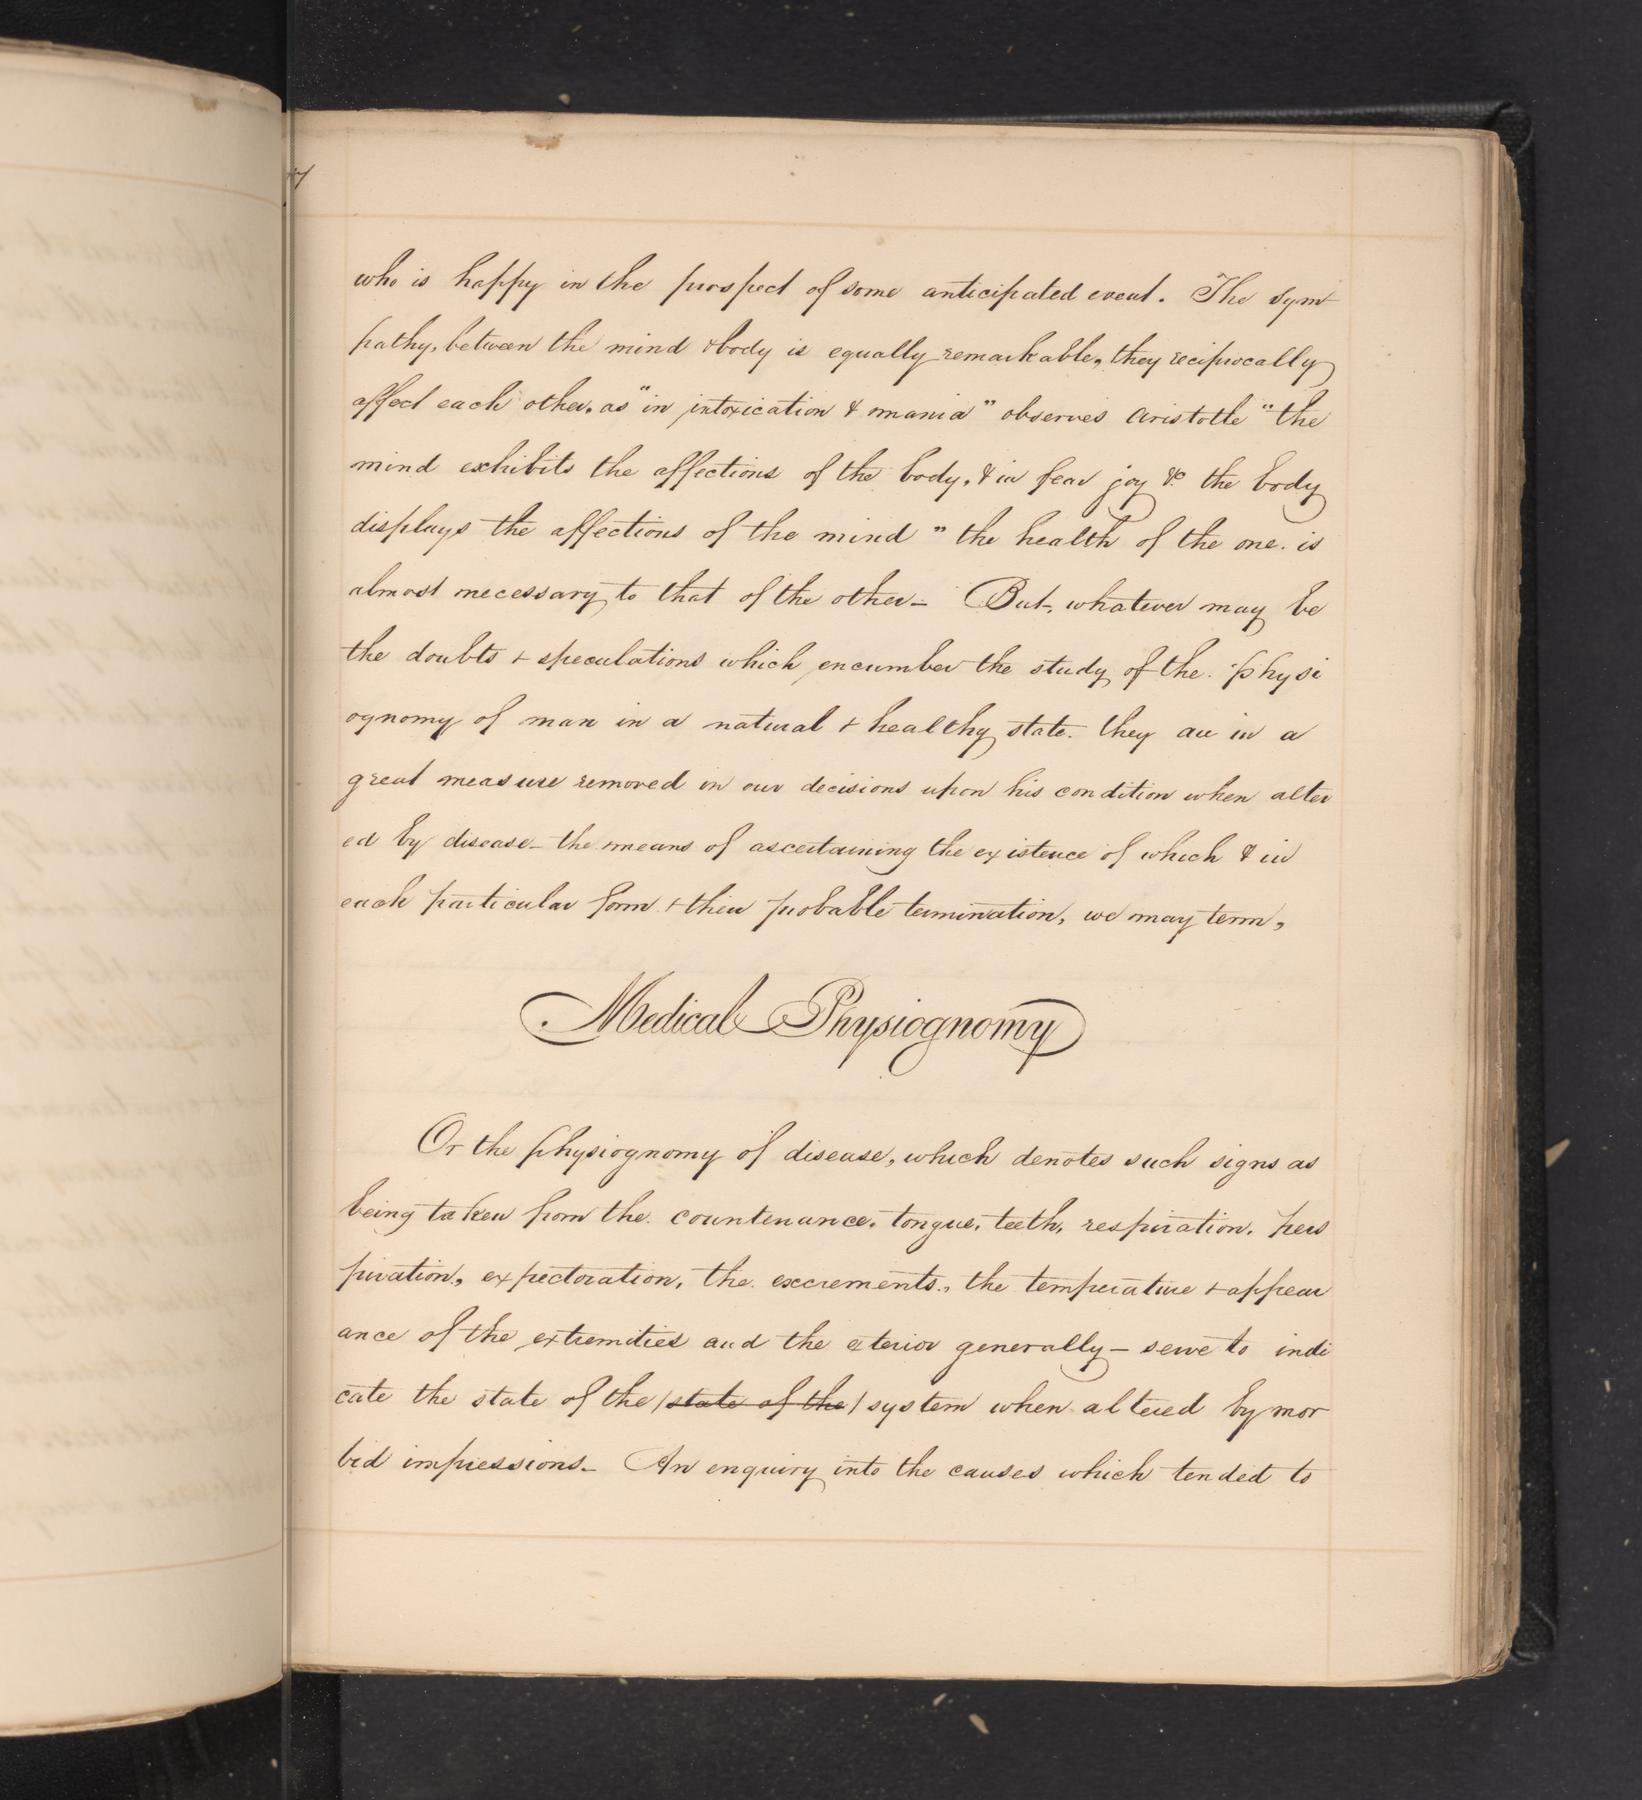 who is happy in the prospect of some anticipated event. The sym
pathy, between the mind & body is equally remarkable, they reciprocally
affect each other, as "in intoxication & mania" observes Aristotle "the
mind exhibits the affections of the body, & in fear joy &c the body
displays the affections of the mind" the health of the one is
almost necessary to that of the other – But, whatever may be
the doubts & speculations which encumber the study of the physi
ognomy of man in a natural & healthy state. they are in a
great measure removed in our decisions upon his condition when alter
ed by disease – the means of ascertaining the existence of which & in
each particular form & their probable termination, we may term,
Medical Physiognomy
Or the physiognomy of disease, which denotes such signs as
being taken from the countenance, tongue, teeth, respiration, pers
piration, expectoration, the excrements, the temperature & appear
ance of the extremities and the eterior generally – serve to indi
cate the state of the (state of the) system when altered by mor
bid impressions – An enquiry into the causes which tended to